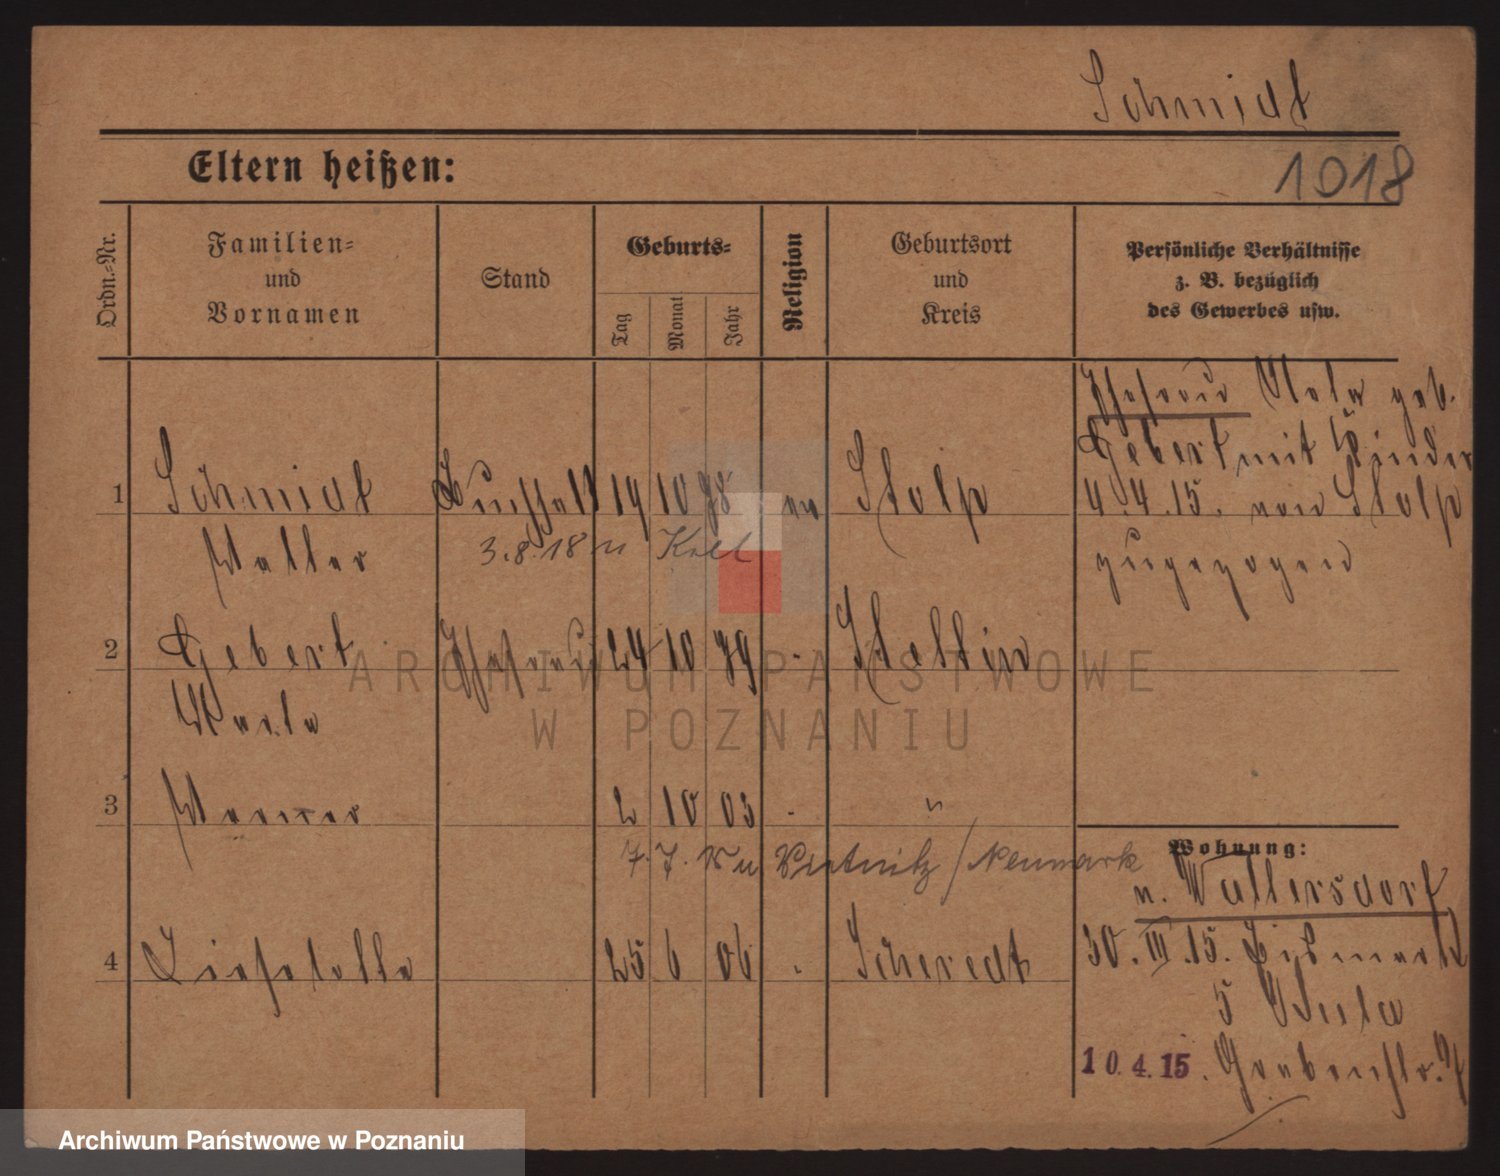 Schmidt
Eltern heißen:
1018
Ordn.-Nr.
Familien-
und
Vornamen
Stand
Geburts-
Tag
Monat
Jahr
Religion
Geburtsort
und
Kreis
Persönliche Verhältnisse
z. B. bezüglich
des Gewerbes usw.
Ehefrau geb.
Gebert mit Kinder
4.4.15. von Stolp
zugezogen
1 Schmidt Buchhalt 19 10 78 ev Stolp
Walter
3.8.18 n
2 Gebert Ehefrau 24 10 79 - Stettin
3 Werner 2 10 03 - "
7. 7. n Vietnitz / Neumark
4 25 6 06 -
Wohnung:
n. Waltersdorf
30. III. 15. Bismark
5
10.4.15. Grabenstr. 7
ARCHIWUM PAŃSTWOWE
W POZNANIU
Archiwum Państwowe w Poznaniu